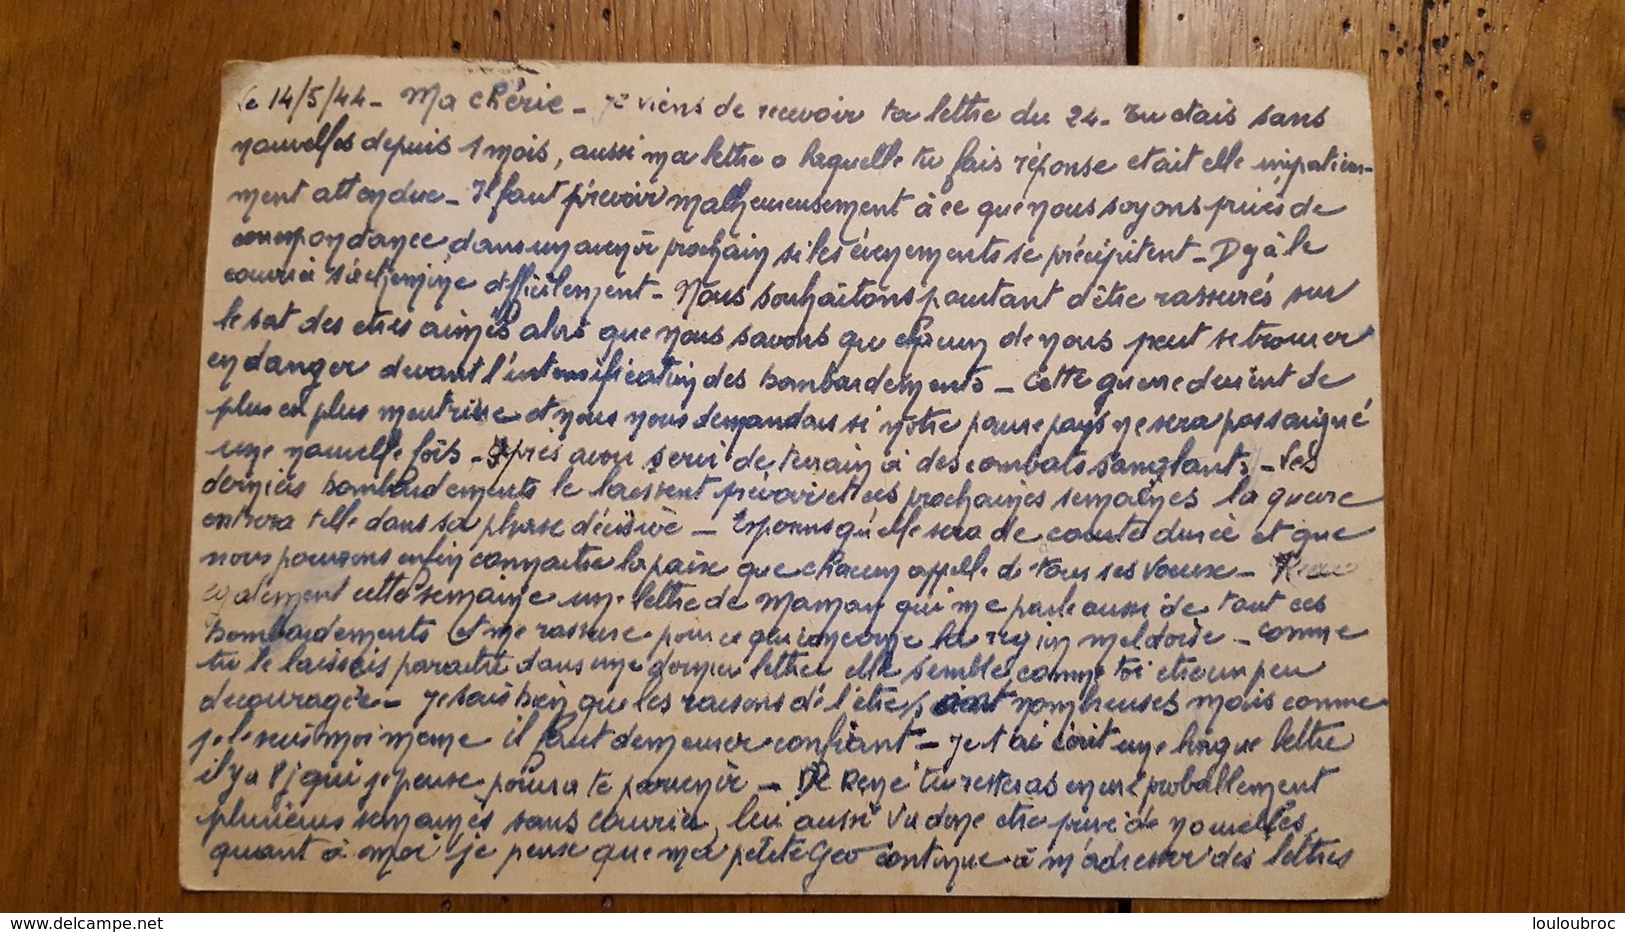 le 14/5/44 - Ma chérie - Je viens de recevoir ta lettre du 24 - Tu etais sans
nouvelles depuis 1 mois, aussi ma lettre a laquelle tu fais réponse etait elle impatiem-
ment attendue - Il faut prévoir malheureusement à ce que nous soyons privés de
correspondance dans un avenir prochain si les évenements se précipitent - Deja le
courrier s'achemine difficilement - Nous souhaitons pourtant d'être rassurés sur
le sort des etres aimés alors que nous savons que chacun de nous peut se trouver
en danger devant l'intensification des bombardements - Cette guerre devient de
plus en plus meutrière et nous nous demandons si notre pauvre pays ne sera pas saigné
une nouvelle fois - Après avoir servi de terrain à des combats sanglants - Les
derniers bombardements le laissent prévoir et ces prochaines semaines la guerre
entrera telle dans sa phase décisive - Esperons qu'elle sera de courte durée et que
nous pourrons enfin connaitre la paix que chacun appelle de tous ses voeux - Recu
également cette semaine une lettre de Maman qui me parle aussi de tout ces
bombardements et me rassure pour ce qui concerne la region meldoise - Comme
tu le laissais paraitre dans une dernier lettre elle semble, comme toi etre un peu
decouragée - Je sais bien que les raisons de l'etre sont nombreuses mais comme
je le suis moi meme il faut demeurer confiant - Je t'ai écrit une longue lettre
il y a 8 j qui je pense pourra te parvenir - De René tu resteras encore probablement
plusieurs semaines sans courrier, lui aussi va donc etre privé de nouvelles,
quant à moi je pense que ma petite Geo continue à m'adresser des lettres
www.delcampe.net
louloubroc